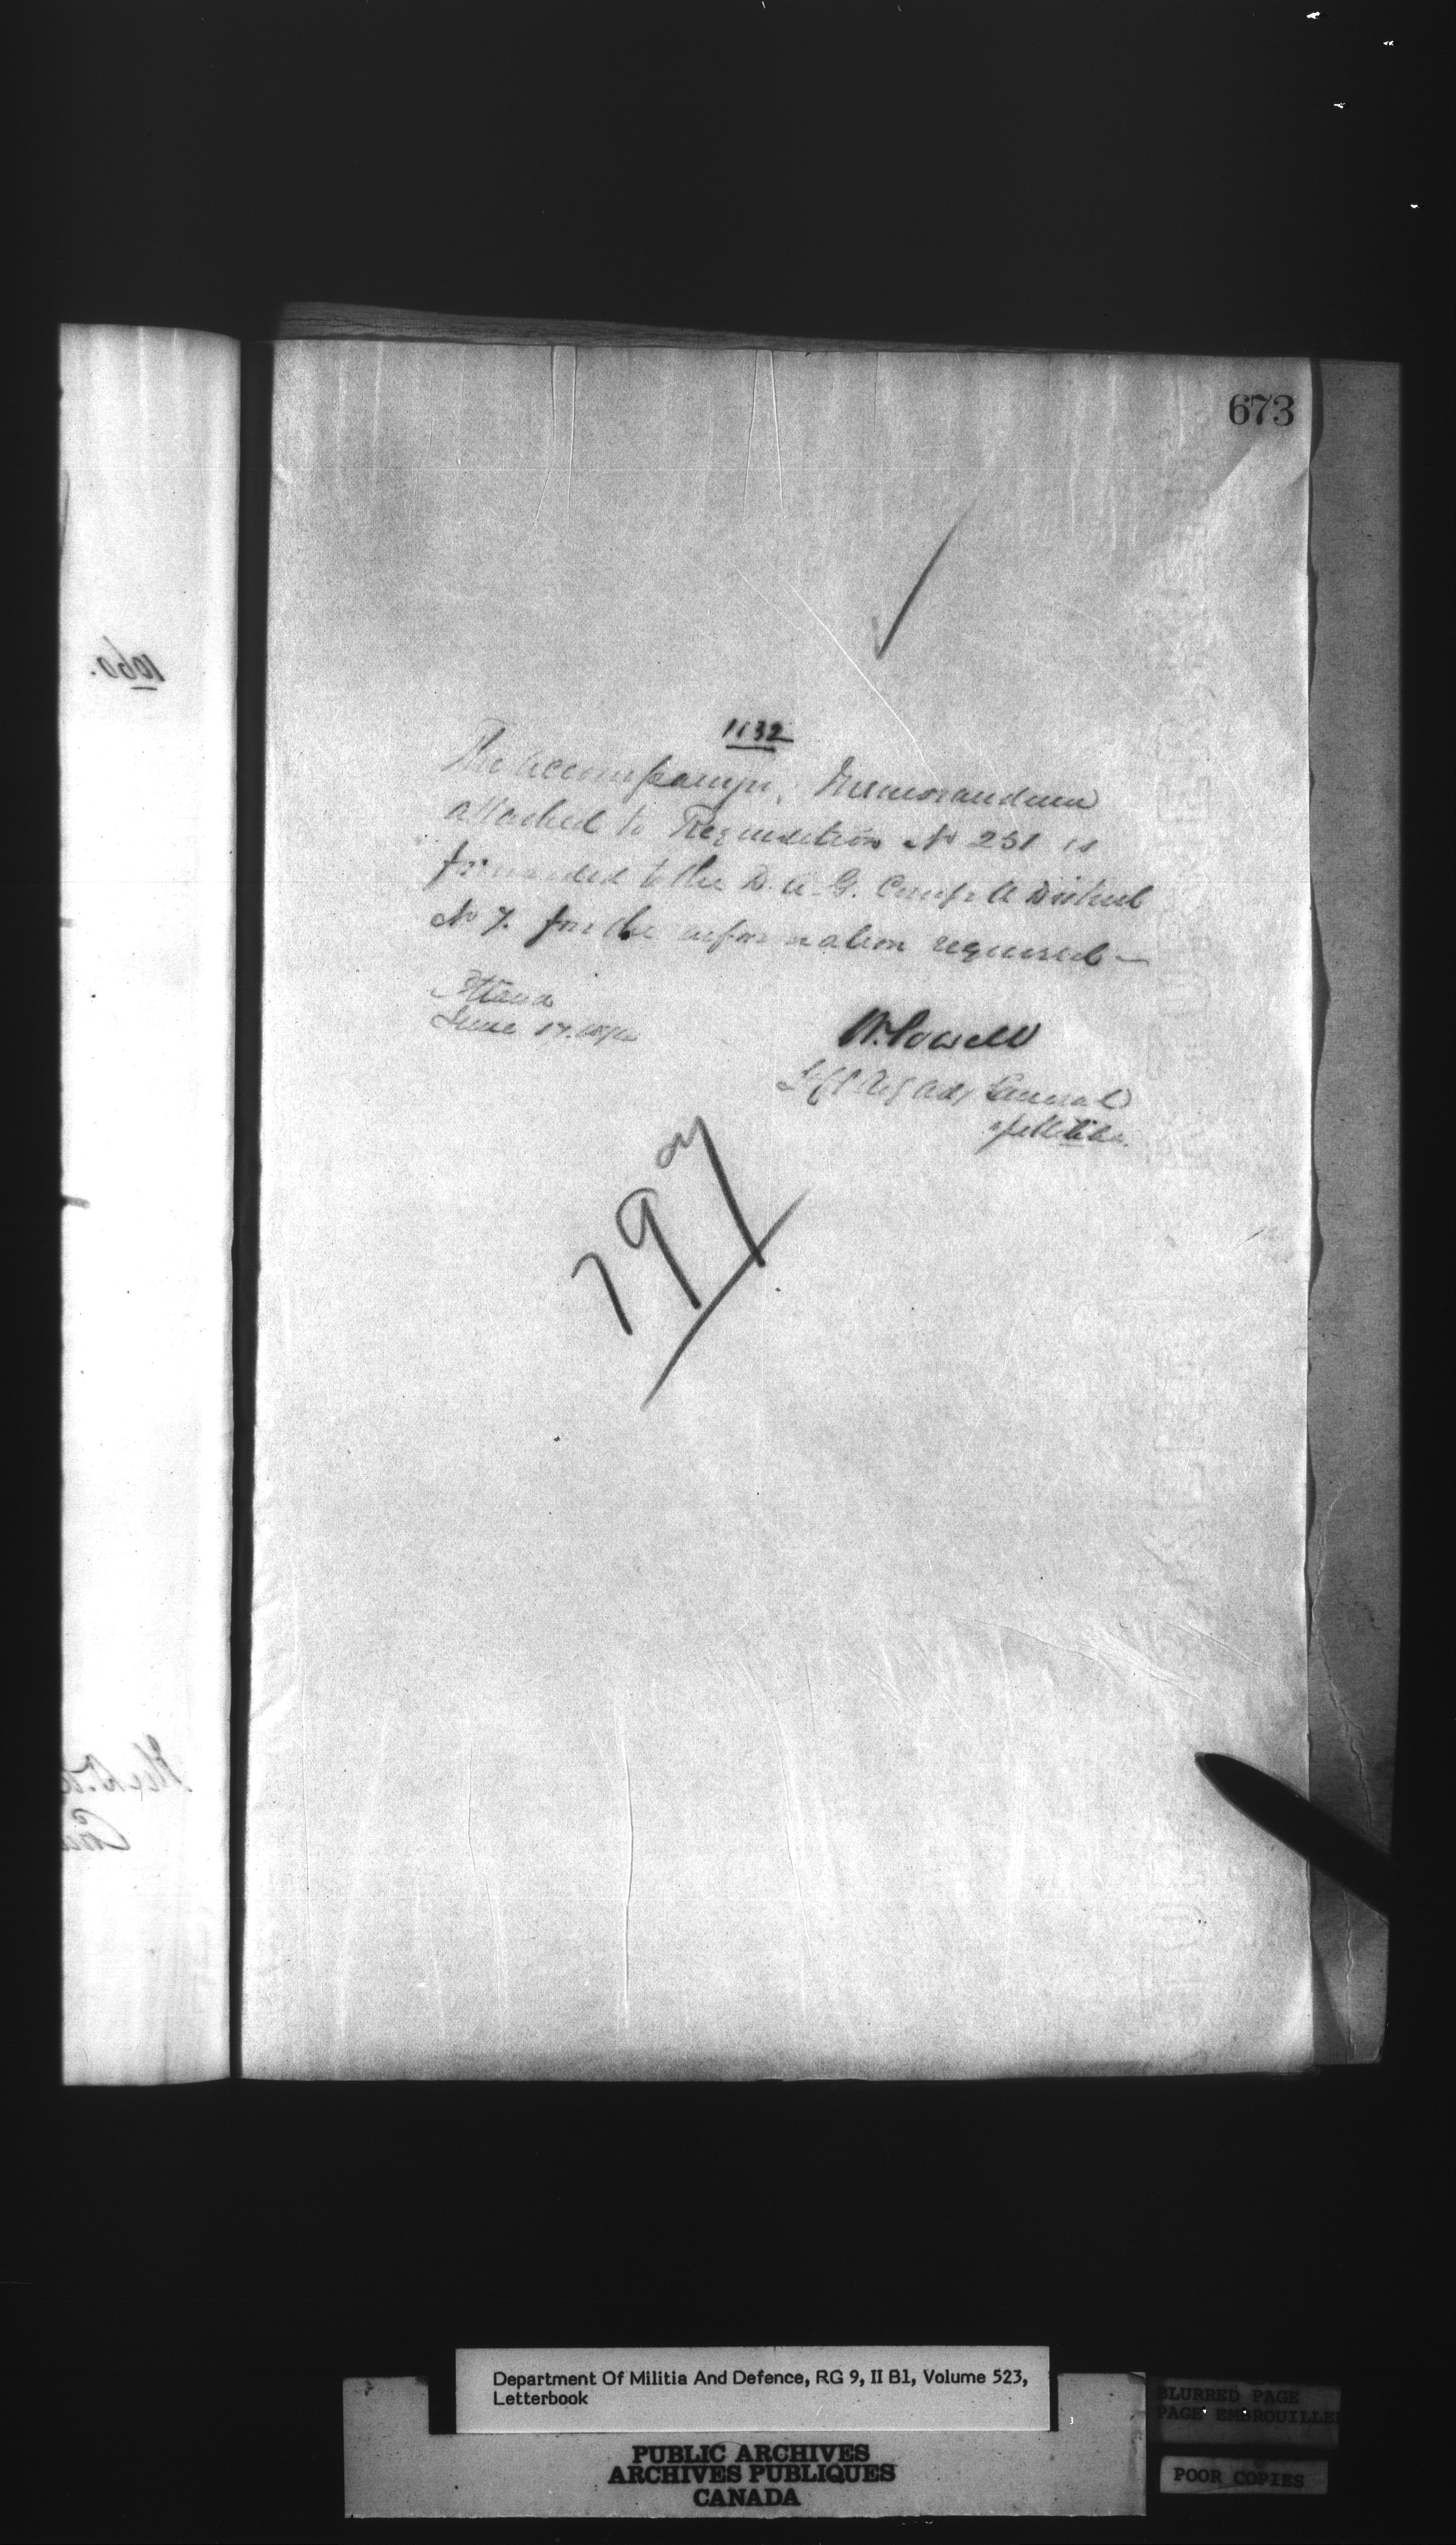 673
1132
The accompanying Memorandum
attached to Requisition No 251 is
forwarded to the D. A. G. Comg Mil District
No 7. for the information required —
Ottawa
June 17.
W. Powell
Adj General
of Militia.
797
1060.
Department Of Militia And Defence, RG 9, II B1, Volume 523,
Letterbook
PUBLIC ARCHIVES
ARCHIVES PUBLIQUES
CANADA
BLURRED PAGE
PAGE EMBROUILLE
POOR COPIES